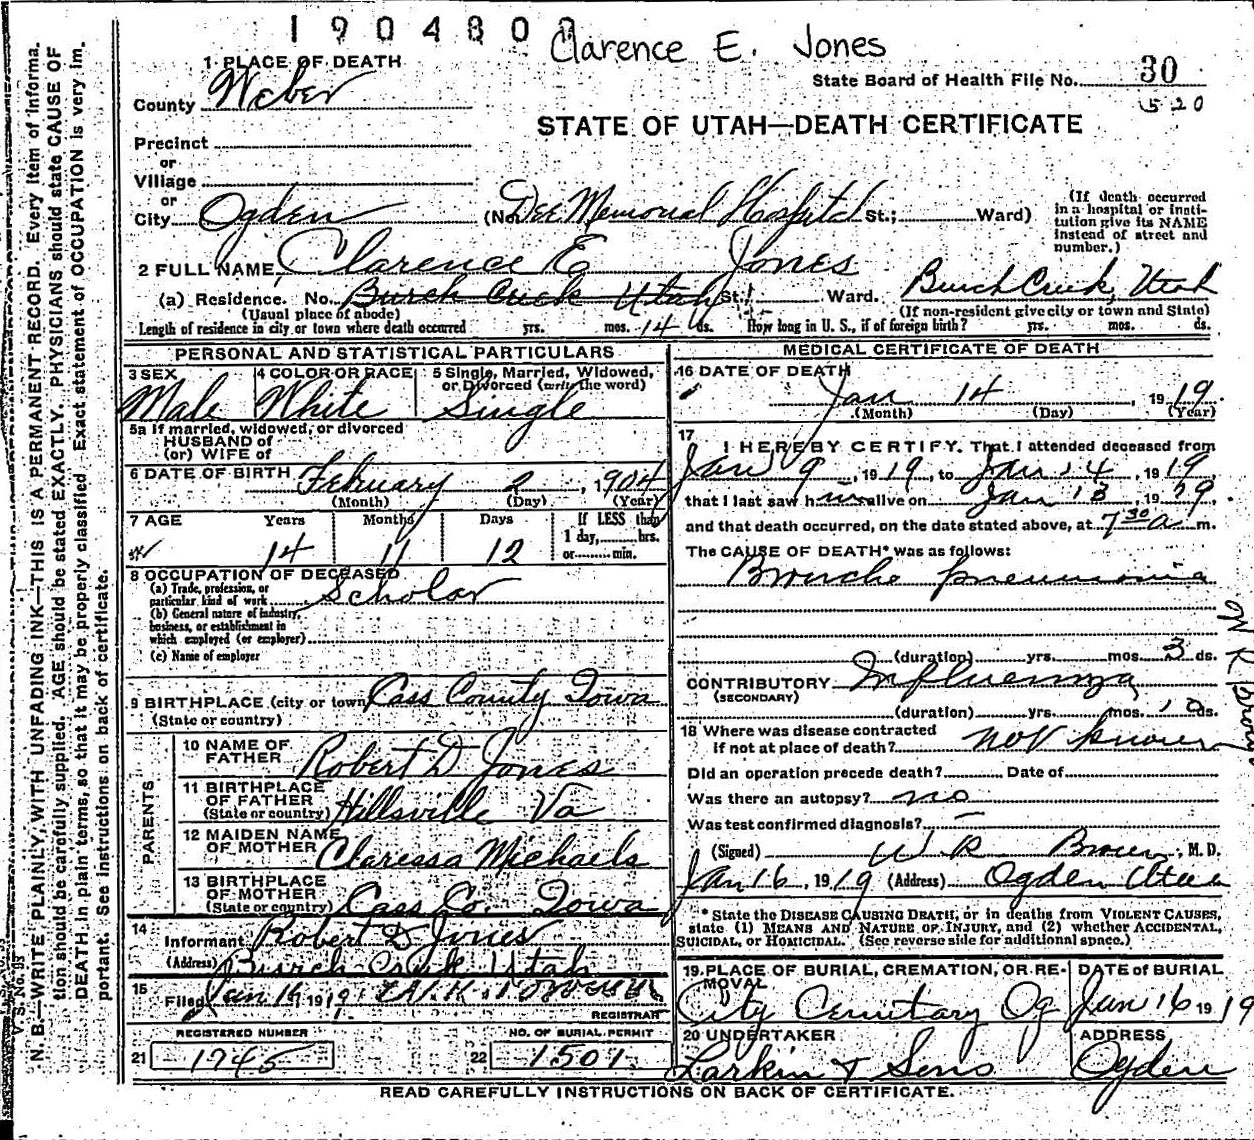 1904800 Clarence E. Jones
1 PLACE OF DEATH
State Board of Health File No. 30
County Weber
520
STATE OF UTAH—DEATH CERTIFICATE
Precinct
or
Village
or
City Ogden (No. Dee Memorial Hospital St.; Ward)
(If death occurred in a hospital or institution give its NAME instead of street and number.)
2 FULL NAME Clarence E Jones
(a) Residence. No. Burch Creek Utah St., Ward. Burch Creek, Utah
(Usual place of abode) (If non-resident give city or town and State)
Length of residence in city or town where death occurred yrs. mos. 14 ds. How long in U. S., if of foreign birth? yrs. mos. ds.
PERSONAL AND STATISTICAL PARTICULARS
3 SEX 4 COLOR OR RACE 5 Single, Married, Widowed, or Divorced (write the word)
Male White Single
5a If married, widowed, or divorced
HUSBAND of
(or) WIFE of
6 DATE OF BIRTH February 2, 1904
(Month) (Day) (Year)
7 AGE Years Months Days If LESS than
1 day, hrs.
14 11 12 or min.
8 OCCUPATION OF DECEASED
(a) Trade, profession, or
particular kind of work Scholar
(b) General nature of industry,
business, or establishment in
which employed (or employer)
(c) Name of employer
9 BIRTHPLACE (city or town) Cass County Iowa
(State or country)
PARENTS
10 NAME OF
FATHER Robert D Jones
11 BIRTHPLACE
OF FATHER
(State or country) Hillsville Va
12 MAIDEN NAME
OF MOTHER Claressa Michaels
13 BIRTHPLACE
OF MOTHER
(State or country) Cass Co. Iowa
14
Informant Robert D Jones
(Address) Burch Creek Utah
15
Filed Jan 16 1919
REGISTRAR
REGISTERED NUMBER NO. OF BURIAL PERMIT
21 1745 22 1501
MEDICAL CERTIFICATE OF DEATH
16 DATE OF DEATH
Jan 14, 1919
(Month) (Day) (Year)
17
I HEREBY CERTIFY, That I attended deceased from
Jan 9, 1919, to Jan 14, 1919
that I last saw him alive on Jan 13, 1919,
and that death occurred, on the date stated above, at 7 30 a m.
The CAUSE OF DEATH* was as follows:
Broncho pneumonia
(duration) yrs. mos. 3 ds.
CONTRIBUTORY Influenza
(SECONDARY)
(duration) yrs. mos. 10 ds.
18 Where was disease contracted
if not at place of death? not known
Did an operation precede death? Date of
Was there an autopsy? no
Was test confirmed diagnosis? —
(Signed) W R Brown, M. D.
Jan 16, 1919 (Address) Ogden Utah
* State the DISEASE CAUSING DEATH, or in deaths from VIOLENT CAUSES,
state (1) MEANS AND NATURE OF INJURY, and (2) whether ACCIDENTAL,
SUICIDAL, or HOMICIDAL. (See reverse side for additional space.)
19 PLACE OF BURIAL, CREMATION, OR REMOVAL DATE of BURIAL
City Cemetary Og Jan 16 1919
20 UNDERTAKER ADDRESS
Larkin & Sons Ogden
READ CAREFULLY INSTRUCTIONS ON BACK OF CERTIFICATE.
N. B.—WRITE PLAINLY, WITH UNFADING INK—THIS IS A PERMANENT RECORD. Every item of informa-
tion should be carefully supplied. AGE should be stated EXACTLY. PHYSICIANS should state CAUSE OF
DEATH in plain terms, so that it may be properly classified. Exact statement of OCCUPATION is very im-
portant. See instructions on back of certificate.